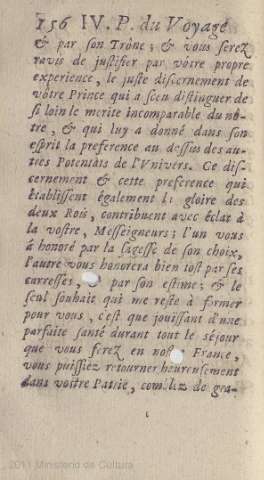 156 IV. P. du Voyage
& par son Trône; & vous serez
ravis de justifier par vôtre propre
experience, le juste discernement de
vôtre Prince qui a sceu distinguer de
si loin le merite incomparable du nô-
tre, & qui luy a donné dans son
esprit la preference au dessus des au-
tres Potentats de l'Vnivers. Ce dis-
cernement & cette preference qui
établissent également la gloire des
deux Rois, contribuent avec éclat à
la vostre, Messeigneurs; l'un vous
à honoré par la sagesse de son choix,
l'autre vous honorera bien tost par ses
carresses, par son estime; & le
seul souhait qui me reste à former
pour vous, c'est que jouissant d'une
parfaite santé durant tout le séjour
que vous ferez en France,
vous puissiez retourner heureusement
dans vostre Patrie, comblez de gra-
2011 Ministerio de Cultura